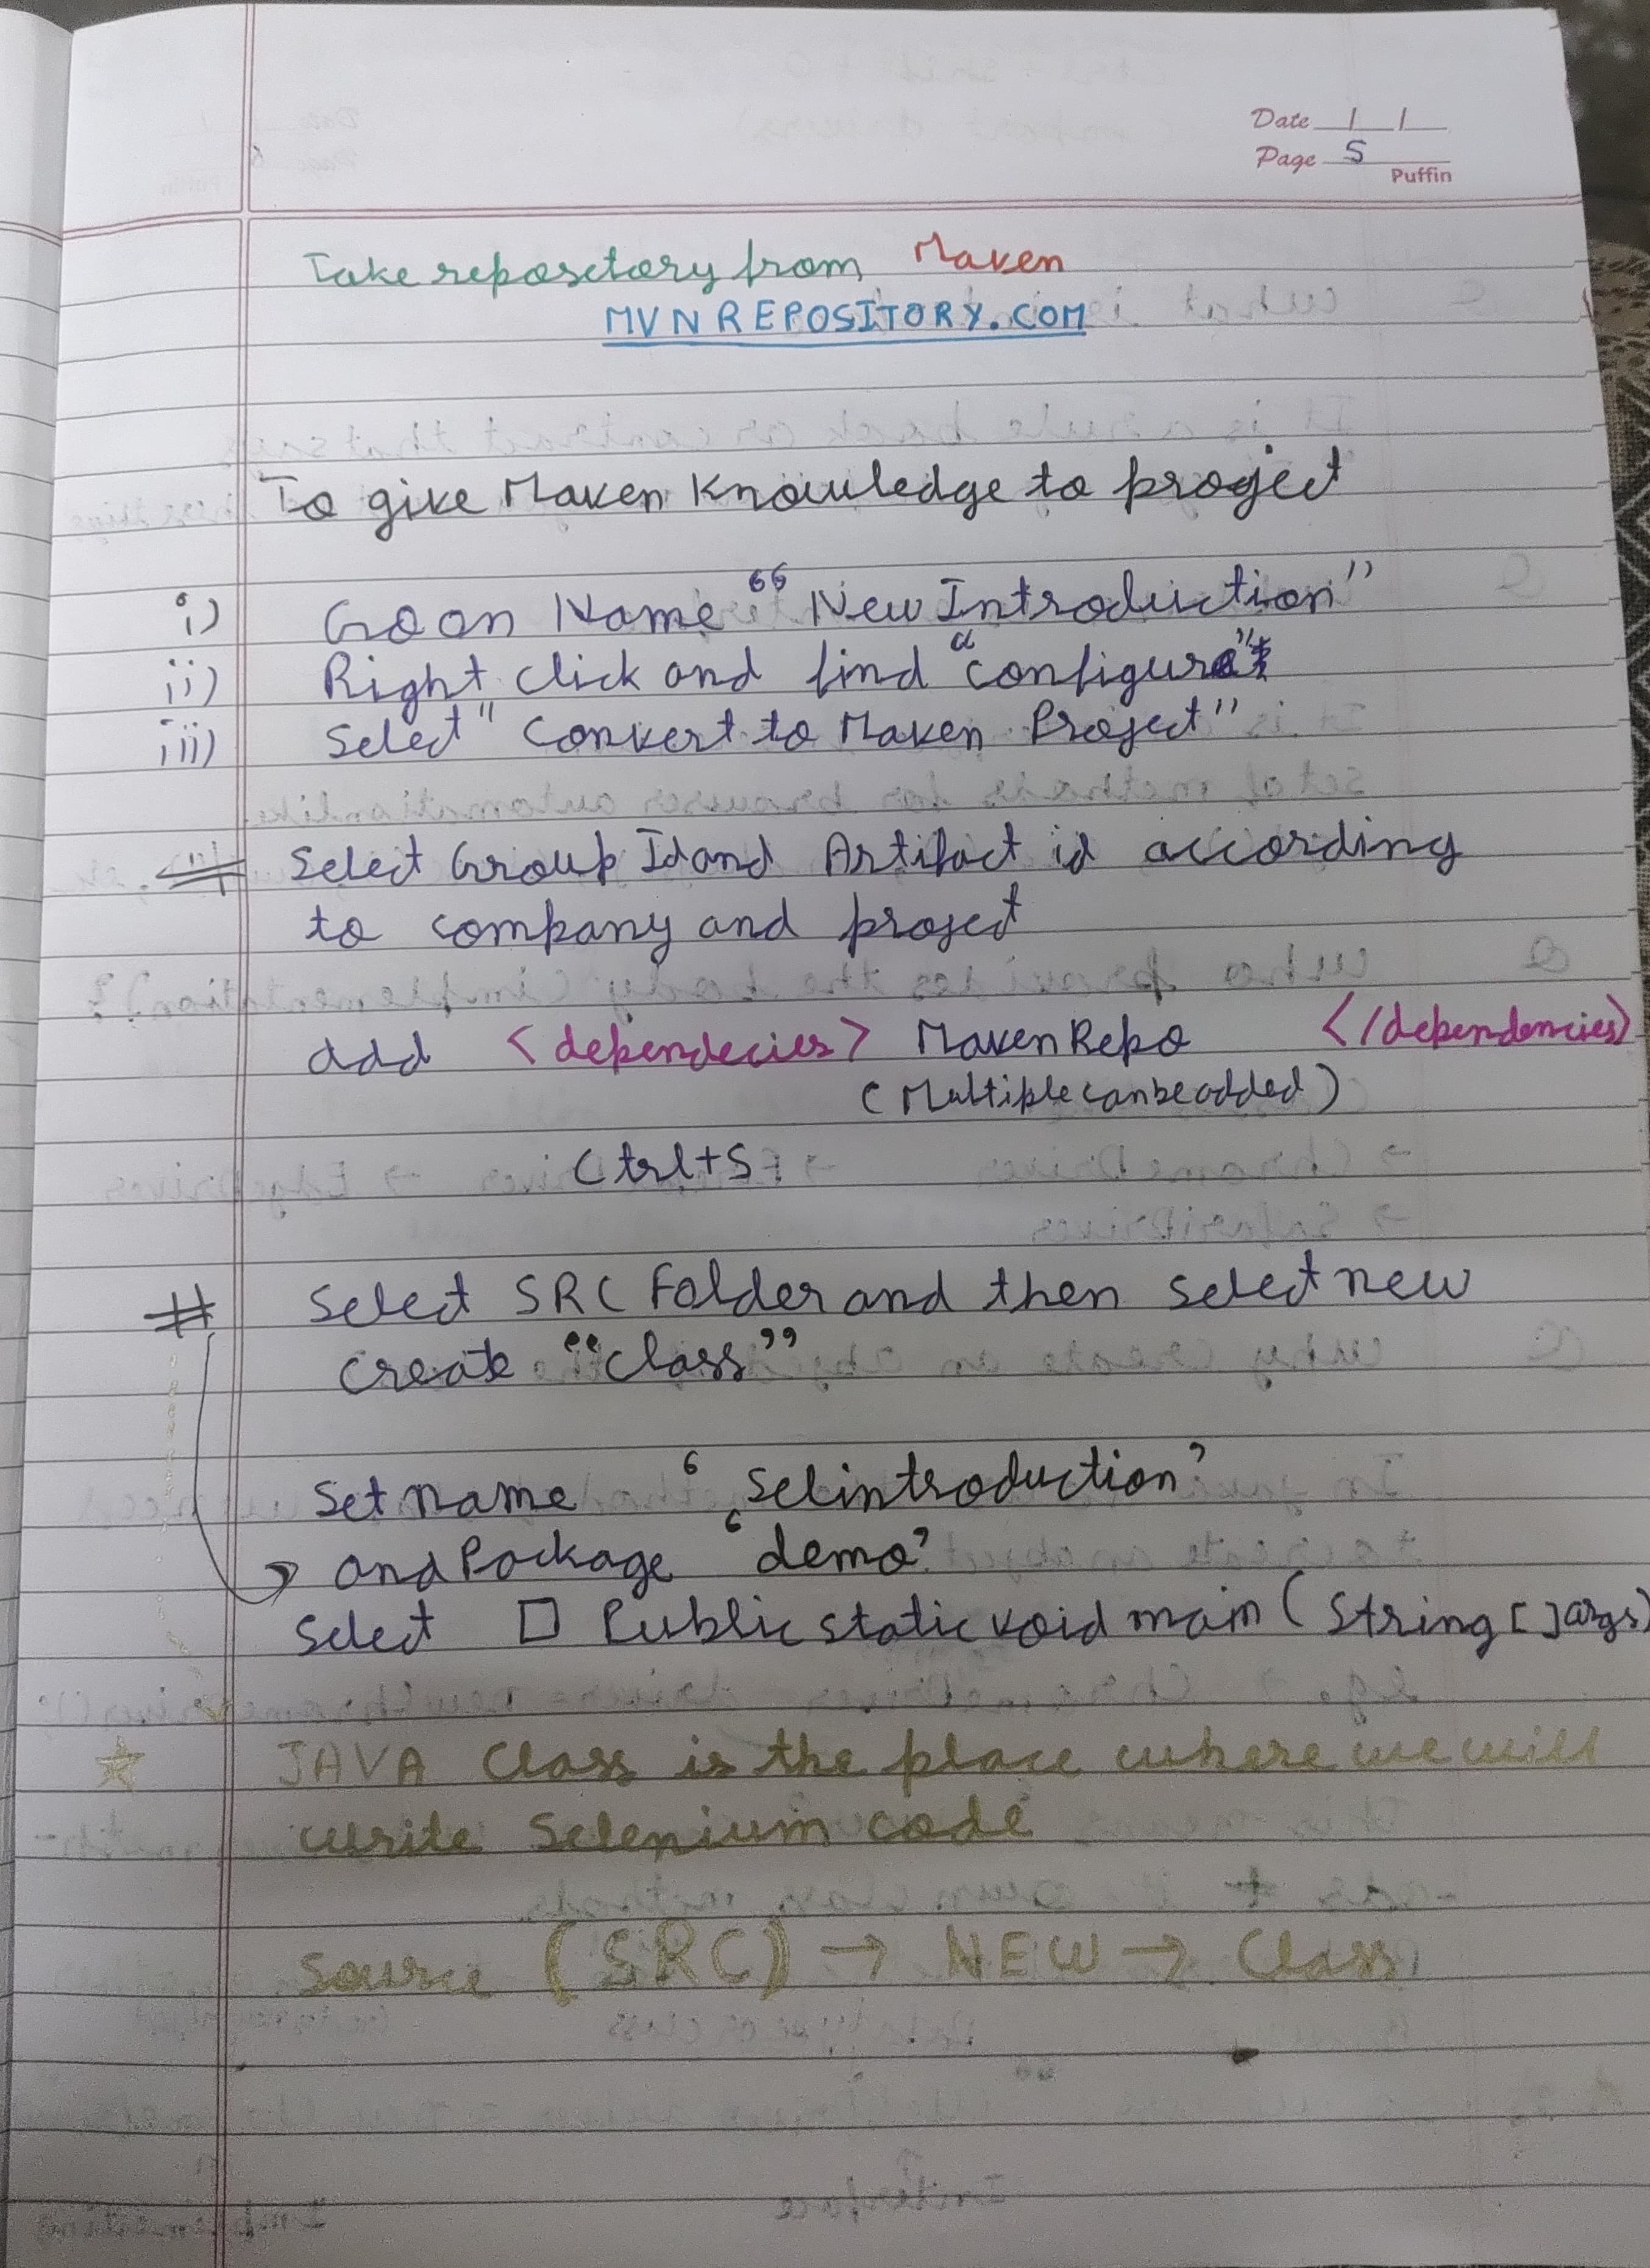 Date 1 1
Page 5
Puffin
Take repository from Maven
MVNREPOSITORY.COM
To give Maven Knowledge to project
i) Go on Name "New Introduction"
ii) Right click and find "configure"
iii) Select "Convert to Maven Project"
# Select Group Id and Artifact id according
to company and project
add <dependecies> Maven Repo </dependencies>
(Multiple can be added)
Ctrl+S
# Select SRC Folder and then select new
create "class"
Set name 'Selintroduction'
→ and Package 'demo'
Select □ Public static void main (String []args)
☆ JAVA Class is the place where we will
write Selenium code
Source (SRC) → NEW → Class